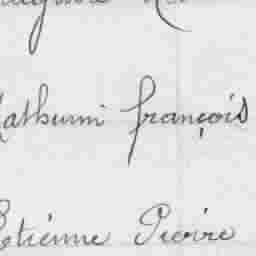 Mathurin françois
Etiénne Pierre